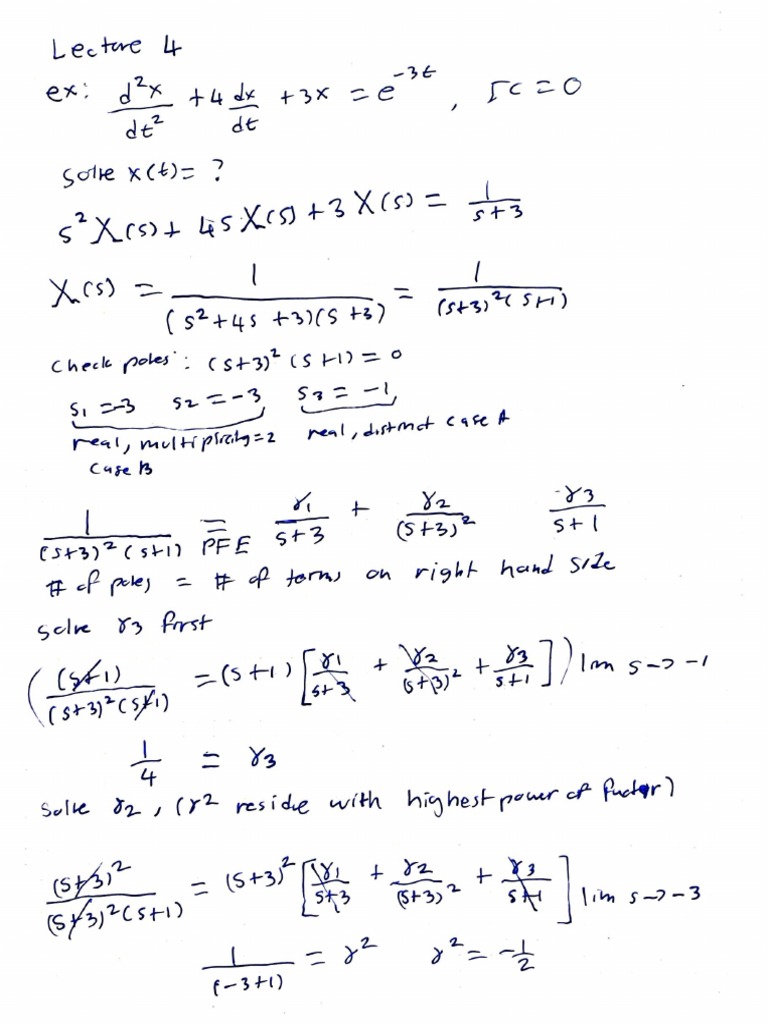 Lecture 4
ex: d²x/dt² + 4 dx/dt + 3x = e^(-3t) , IC = 0
Solve x(t) = ?
s² X(s) + 4s X(s) + 3 X(s) = 1/(s+3)
X(s) = 1/((s²+4s+3)(s+3)) = 1/((s+3)²(s+1))
Check poles: (s+3)²(s+1) = 0
s₁ = -3 s₂ = -3 s₃ = -1
real, multiplicity=2 real, distinct case A
Case B
1/((s+3)²(s+1)) =PFE γ₁/(s+3) + γ₂/(s+3)² γ₃/(s+1)
# of poles = # of terms on right hand side
solve γ₃ first
((s+1)/((s+3)²(s+1)) = (s+1)[γ₁/(s+3) + γ₂/(s+3)² + γ₃/(s+1)]) lim s->-1
1/4 = γ₃
solve γ₂, (γ² residue with highest power of factor)
(s+3)²/((s+3)²(s+1)) = (s+3)²[γ₁/(s+3) + γ₂/(s+3)² + γ₃/(s+1)] lim s->-3
1/(-3+1) = γ² γ² = -1/2